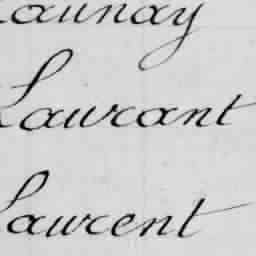 Launay
Laurant
Laurent